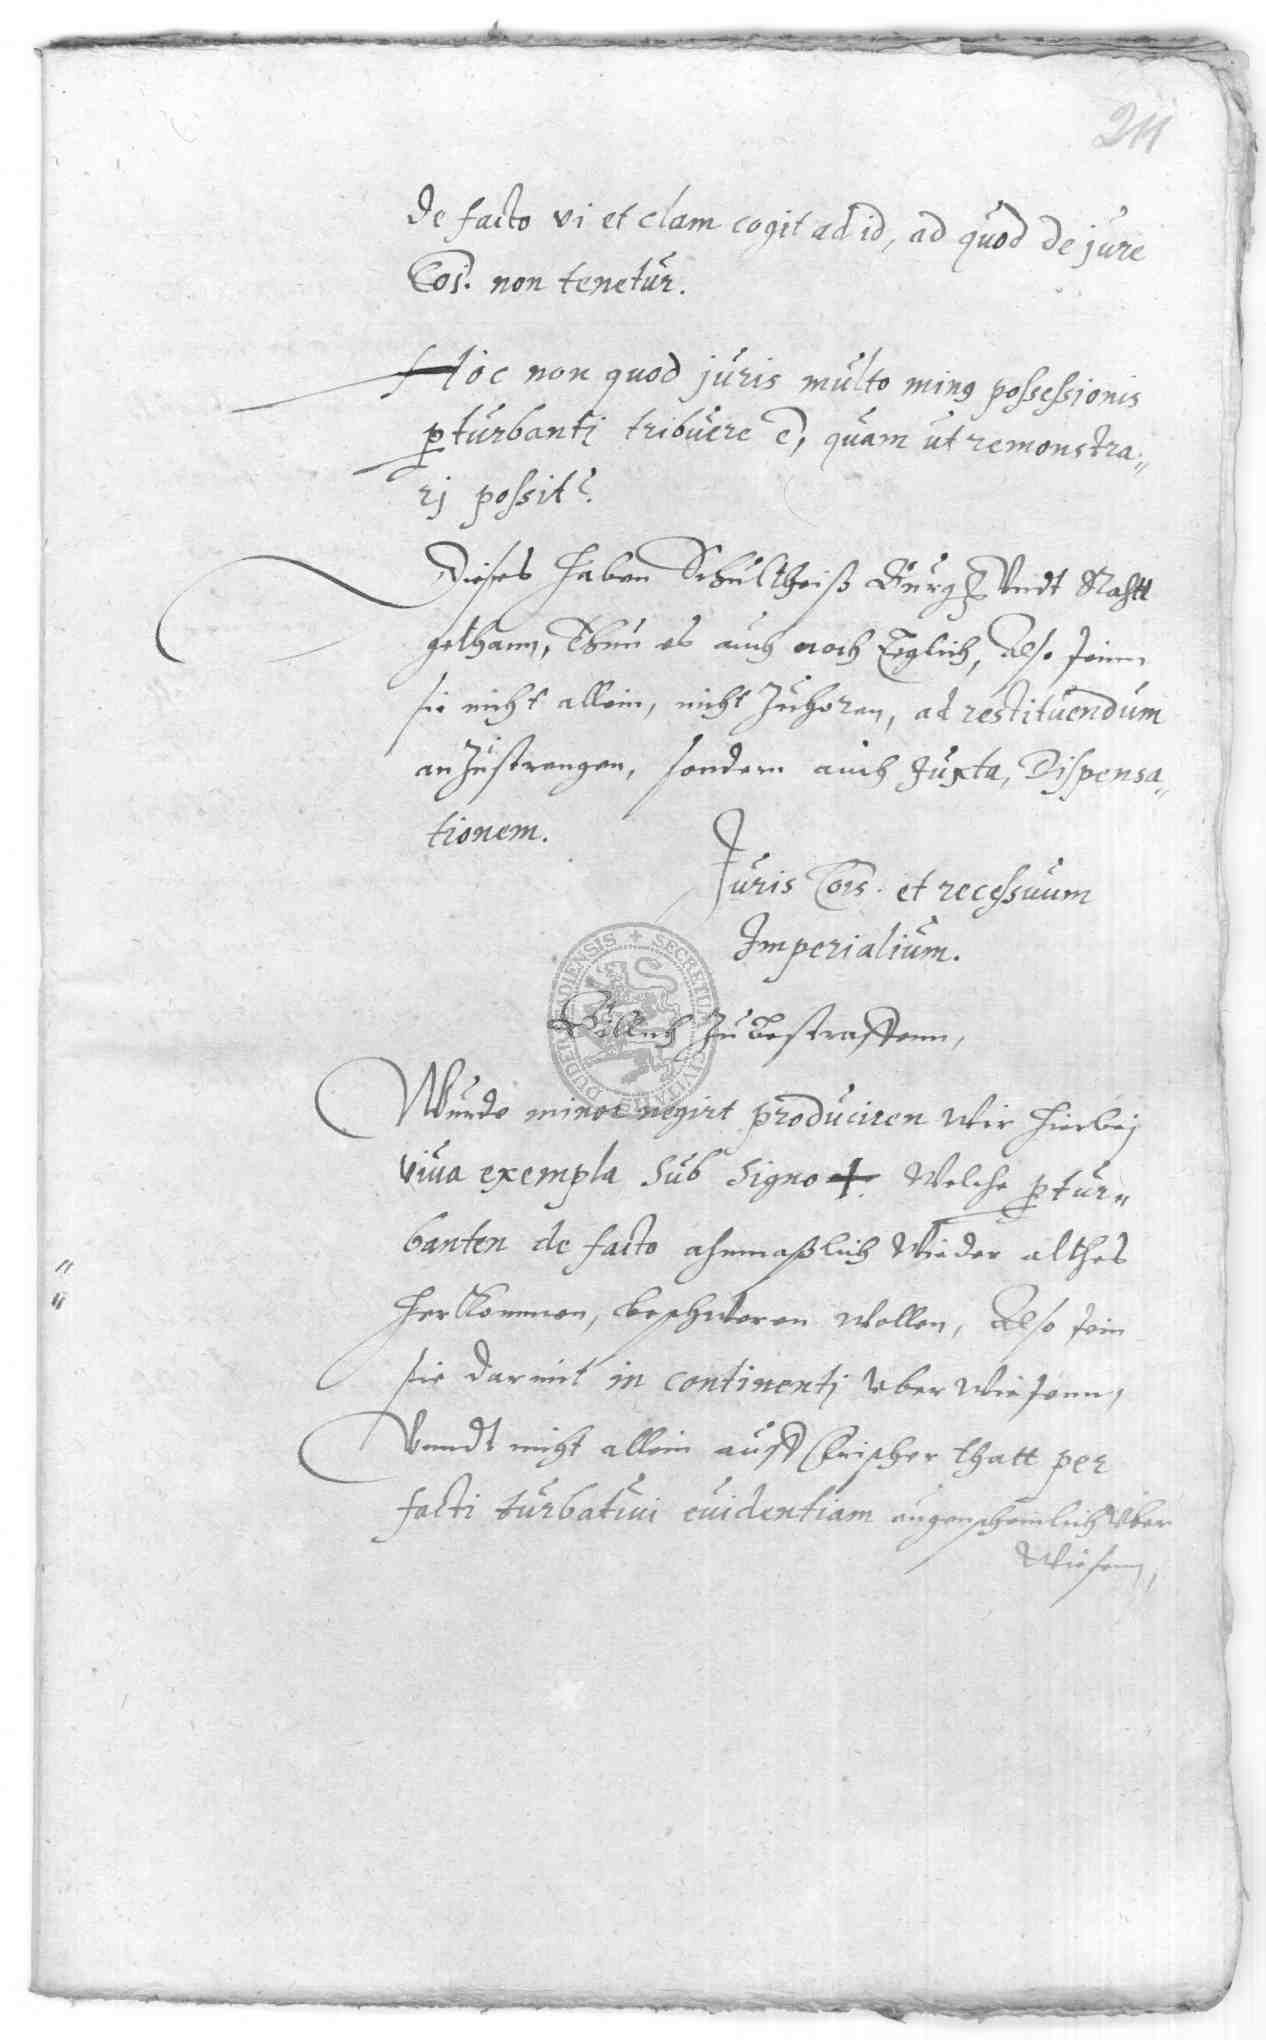 211
de facto vi et clam cogit ad id, ad quod de jure
Cōi. non tenetur.
Hoc non quod juris multo minꝰ possessionis
ꝑturbanti tribuere ē, quam ut remonstra„
rj possit?
Dieses haben Schultheiß Burgs Undt Rahtt
gethann, Thun es auch noch Teglich, Also seinn
sie nicht allein, nicht Zuhoren, ad restituendum
anZustrengen, sondern auch Juxta, Dispensa„
tionem.
Juris Cōis. et recessuum
Imperialium.
Billich Zu Bestraffenn,
Wurde minor negirt produciren wir hierbeij
viva exempla sub signo +. Welche ꝑtur„
banten de facto ahnmaßlich Wieder althes
herkommen, beschweren wollen, Also sein
sie darmit in continentj uberwiesenn,
Unndt nicht allein auff frischer thatt per
facti turbatiui euidentiam augenscheinlich Uber
Wiesenn,
SECRETUM CIVITATIS DUDERSTADIENSIS